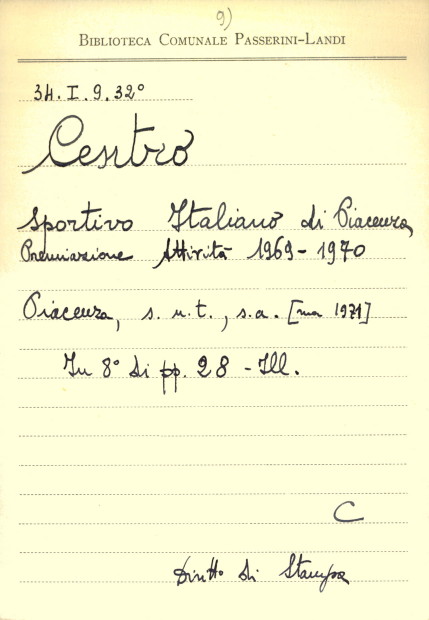 9)
BIBLIOTECA COMUNALE PASSERINI-LANDI
34. I. 9. 32°
Centro
Sportivo Italiano di Piacenza
Premiazione Attività 1969-1970
Piacenza, s. n. t., s. a. [ma 1971]
In 8° di pp. 28 - Ill.
C
Diritto di Stampa